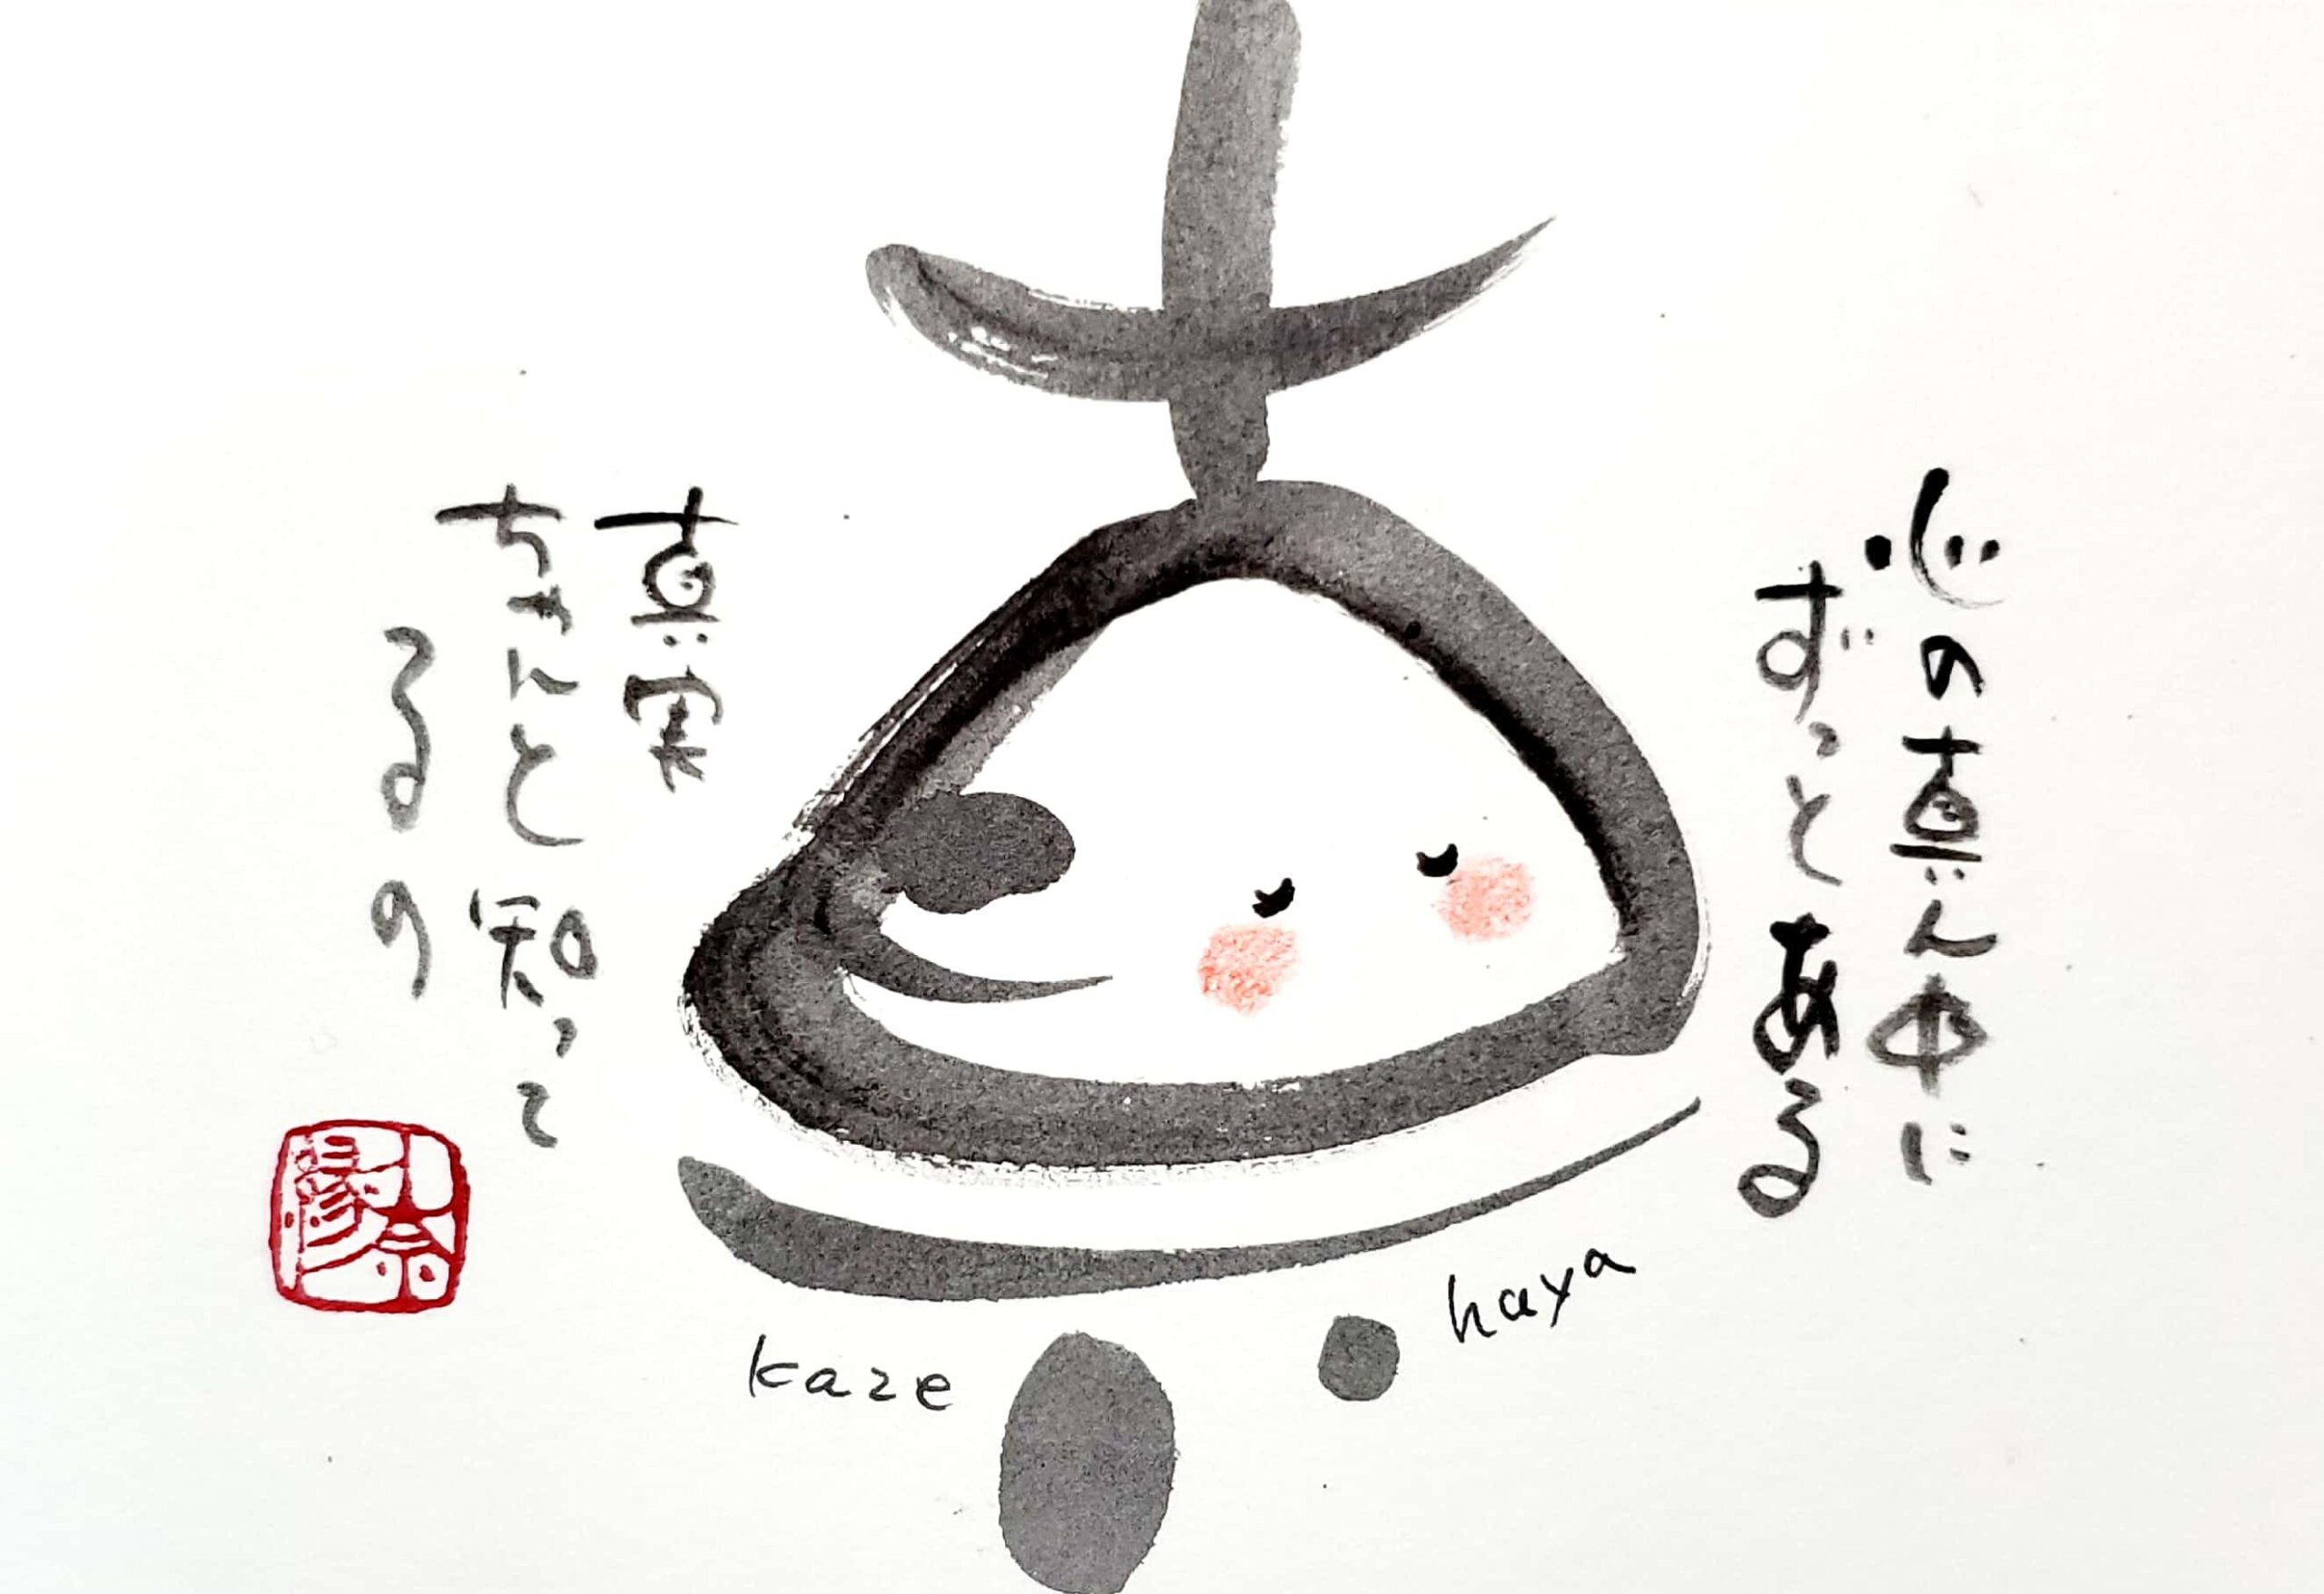 心の真ん中に
ずっとある
真
真実
ちゃんと知って
るの
haya
kaze